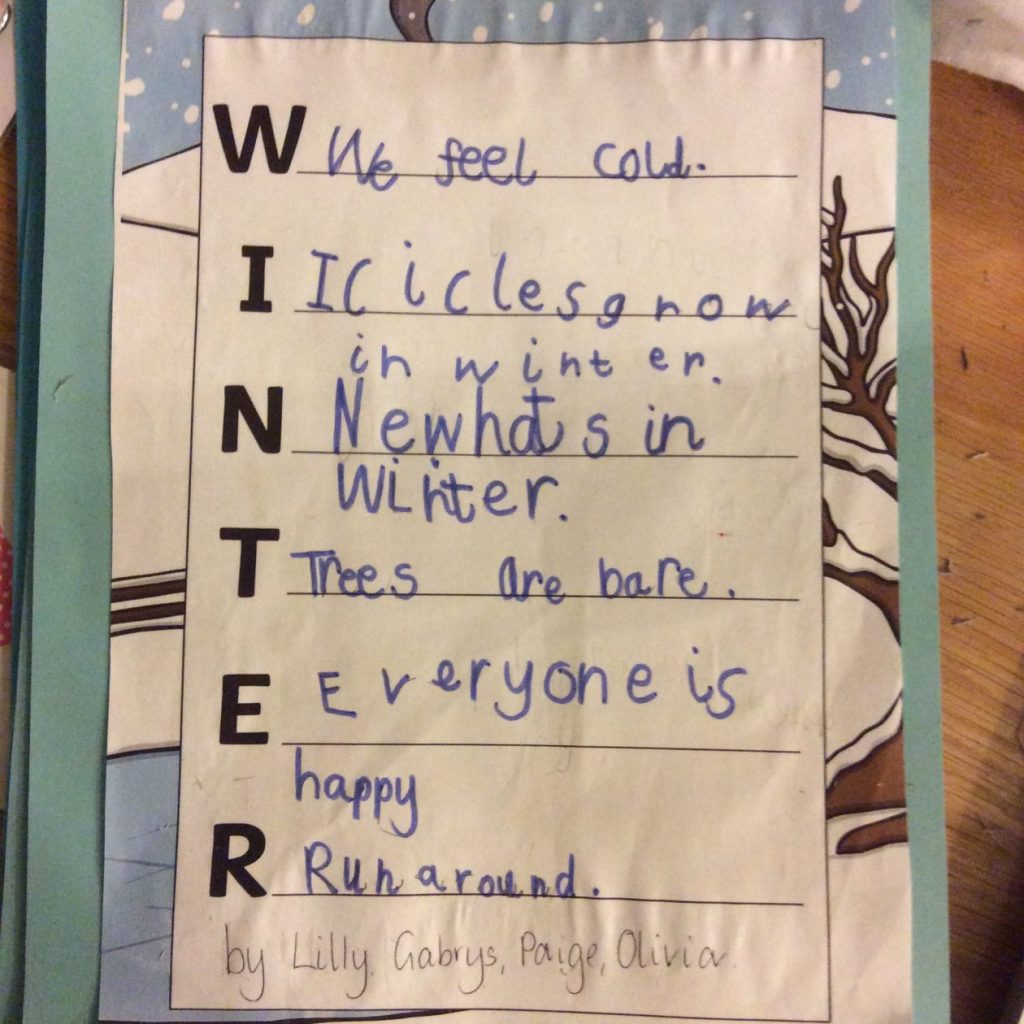 W We feel cold.
I Icicles grow
in winter.
N New hats in
Winter.
T Trees are bare.
E Everyone is
happy
R Run around.
by Lilly, Gabrys, Paige, Olivia.